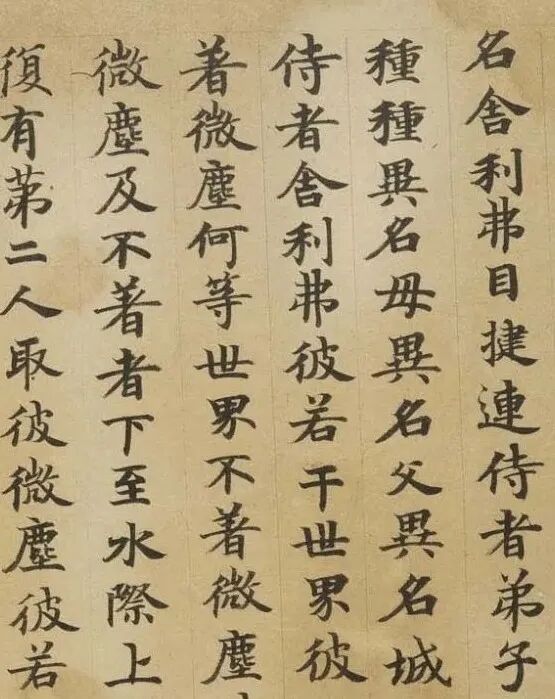 名舍利弗目揵連侍者弟子
種種異名母異名父異名城
侍者舍利弗彼若干世界彼
著微塵何等世界不著微塵
微塵及不著者下至水際上
復有苐二人取彼微塵彼若